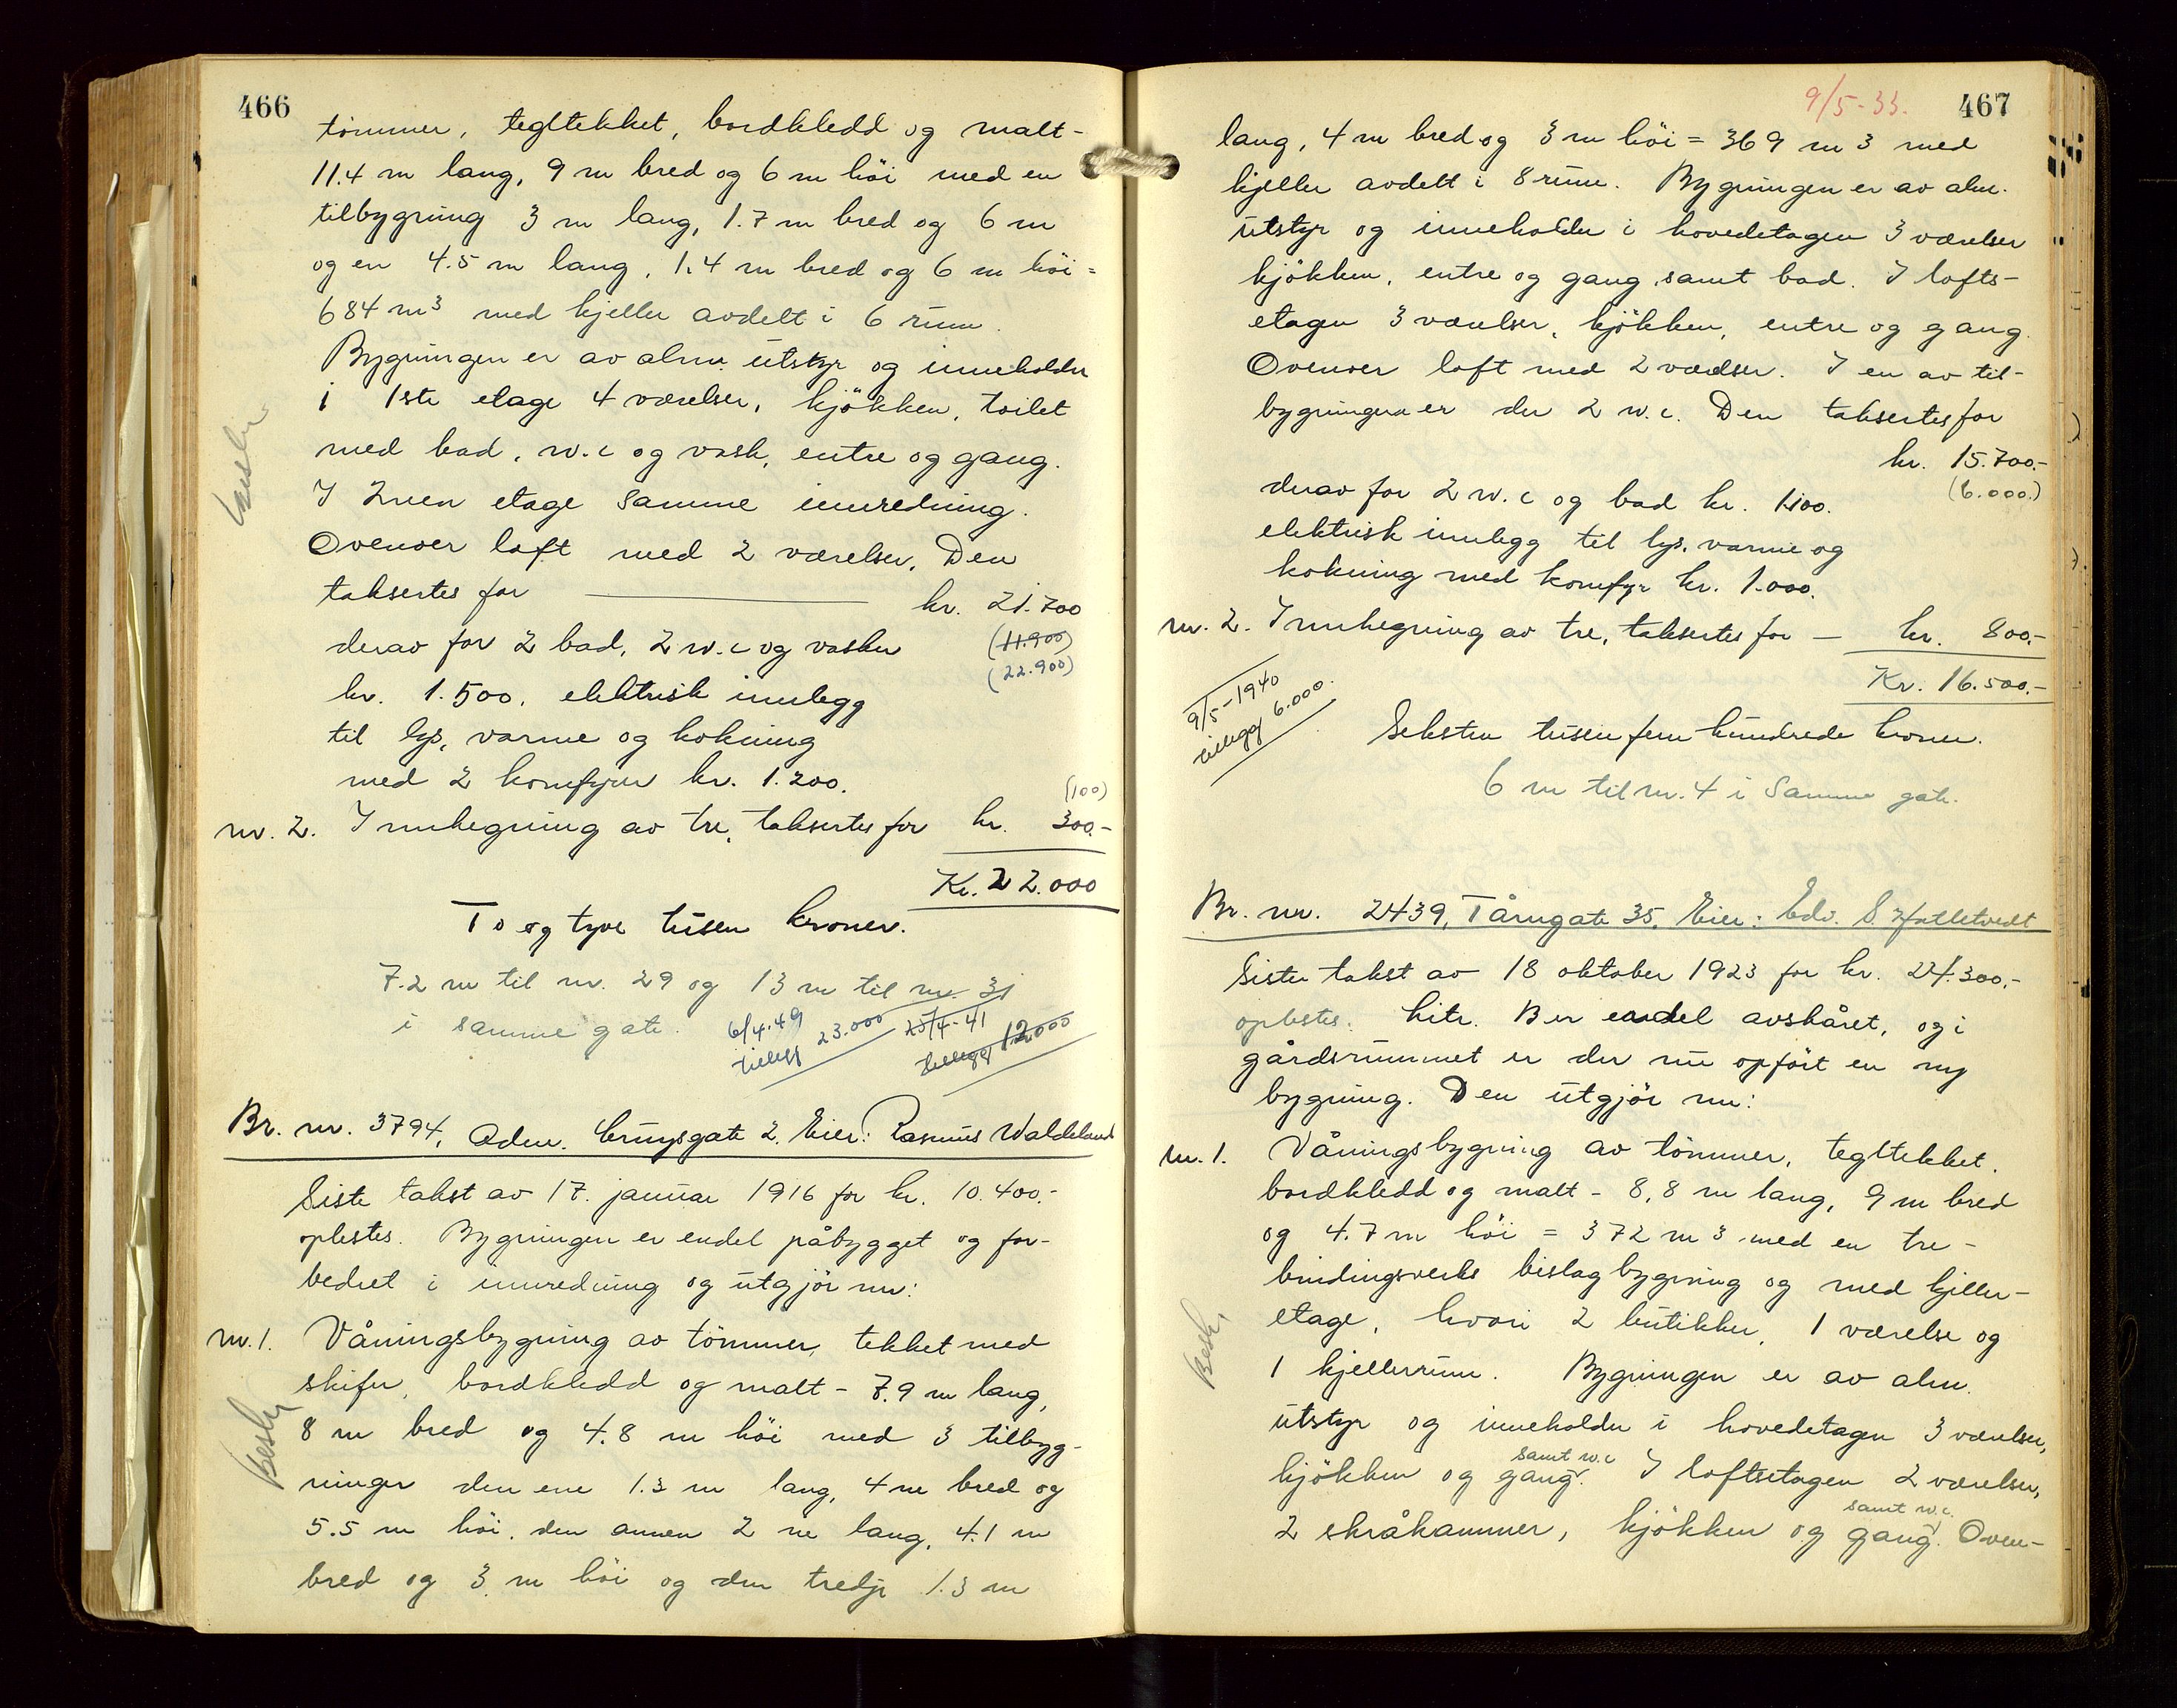 466
tömmer, tegltekket, bordkledd og malt -
11.4 m lang, 9 m bred og 6 m höi med en
tilbygning 3 m lang, 1.7 m bred og 6 m
og en 4.5 m lang, 1.4 m bred og 6 m höi =
684 m3 med kjeller avdelt i 6 rum.
Bygningen er av alm. utstyr og inneholder
i 1ste etage 4 værelser, kjökken, toilet
med bad, w.c og vask, entre og gang.
I 2nen etage samme innredning.
Ovenver loft med 2 værelser. Den
taksertes for kr. 21.700
(11.900)
derav for 2 bad, 2 w.c og vasker
(22.900)
kr. 1.500, elektrisk innlegg
til lys, varme og kokning
med 2 komfyrer kr. 1.200.
(100)
nr. 2. Innhegning av tre, taksertes for kr. 300.-
Kr. 22.000
To og tyve tusen kroner.
7.2 m til nr. 29 og 13 m til nr. 31
i samme gate.
6/4.49 tillegg 23.000
25/4-41 tillegg 12000
Br. nr. 3794, Adm. Cruysgate 2. Eier: Rasmus Waldeland
Siste takst av 17. januar 1916 for kr. 10.400.-
oplestes. Bygningen er endel påbygget og for-
bedret i innredning og utgjör nu:
nr. 1. Våningsbygning av tömmer, tekket med
skifer, bordkledd og malt - 7.9 m lang,
Beskr
8 m bred og 4.8 m höi med 3 tilbyg-
ninger den ene 1.3 m lang, 4 m bred og
5.5 m höi, den annen 2 m lang, 4.1 m
bred og 3 m höi og den tredje 1.3 m
9/5-33. 467
lang, 4 m bred og 3 m höi = 369 m 3 med
kjeller avdelt i 8 rum. Bygningen er av alm.
utstyr og inneholder i hovedetagen 3 værelser
kjökken, entre og gang, samt bad. I lofts-
etagen 3 værelser, kjökken, entre og gang.
Ovenver loft med 2 værelser. I en av til-
bygningene er der 2 w.c. Den taksertes for
kr. 15.700.-
(6.000.)
derav for 2 w.c og bad kr. 1.100.
elektrisk innlegg til lys, varme og
kokning med komfyr kr. 1.000.
nr. 2. Innhegning av tre, taksertes for - kr. 800.-
Kr. 16.500.-
9/5-1940
tillegg 6.000.
Seksten tusen fem hundrede kroner.
6 m til nr. 4 i samme gate.
Br. nr. 2439, Tårngate 35, Eier: Edv. S. Hatletvedt
Siste takst av 18 oktober 1923 for kr. 24.300.-
oplestes. Litr. B er endel avskåret, og i
gårdsrummet er der nu opfört en ny
bygning. Den utgjör nu:
nr. 1. Våningsbygning av tömmer, tegltekket,
bordkledd og malt - 8,8 m lang, 9 m bred
og 4.7 m höi = 372 m 3 med en tre-
bindingsverks bislagbygning og med kjeller-
etage, hvori 2 butikker, 1 værelse og
Beskr
1 kjellerrum. Bygningen er av alm.
utstyr og inneholder i hovedetagen 3 værelser,
samt w.c
kjökken og gang. I loftsetagen 2 værelser,
samt w.c.
2 skråkammer, kjökken og gang. Oven-